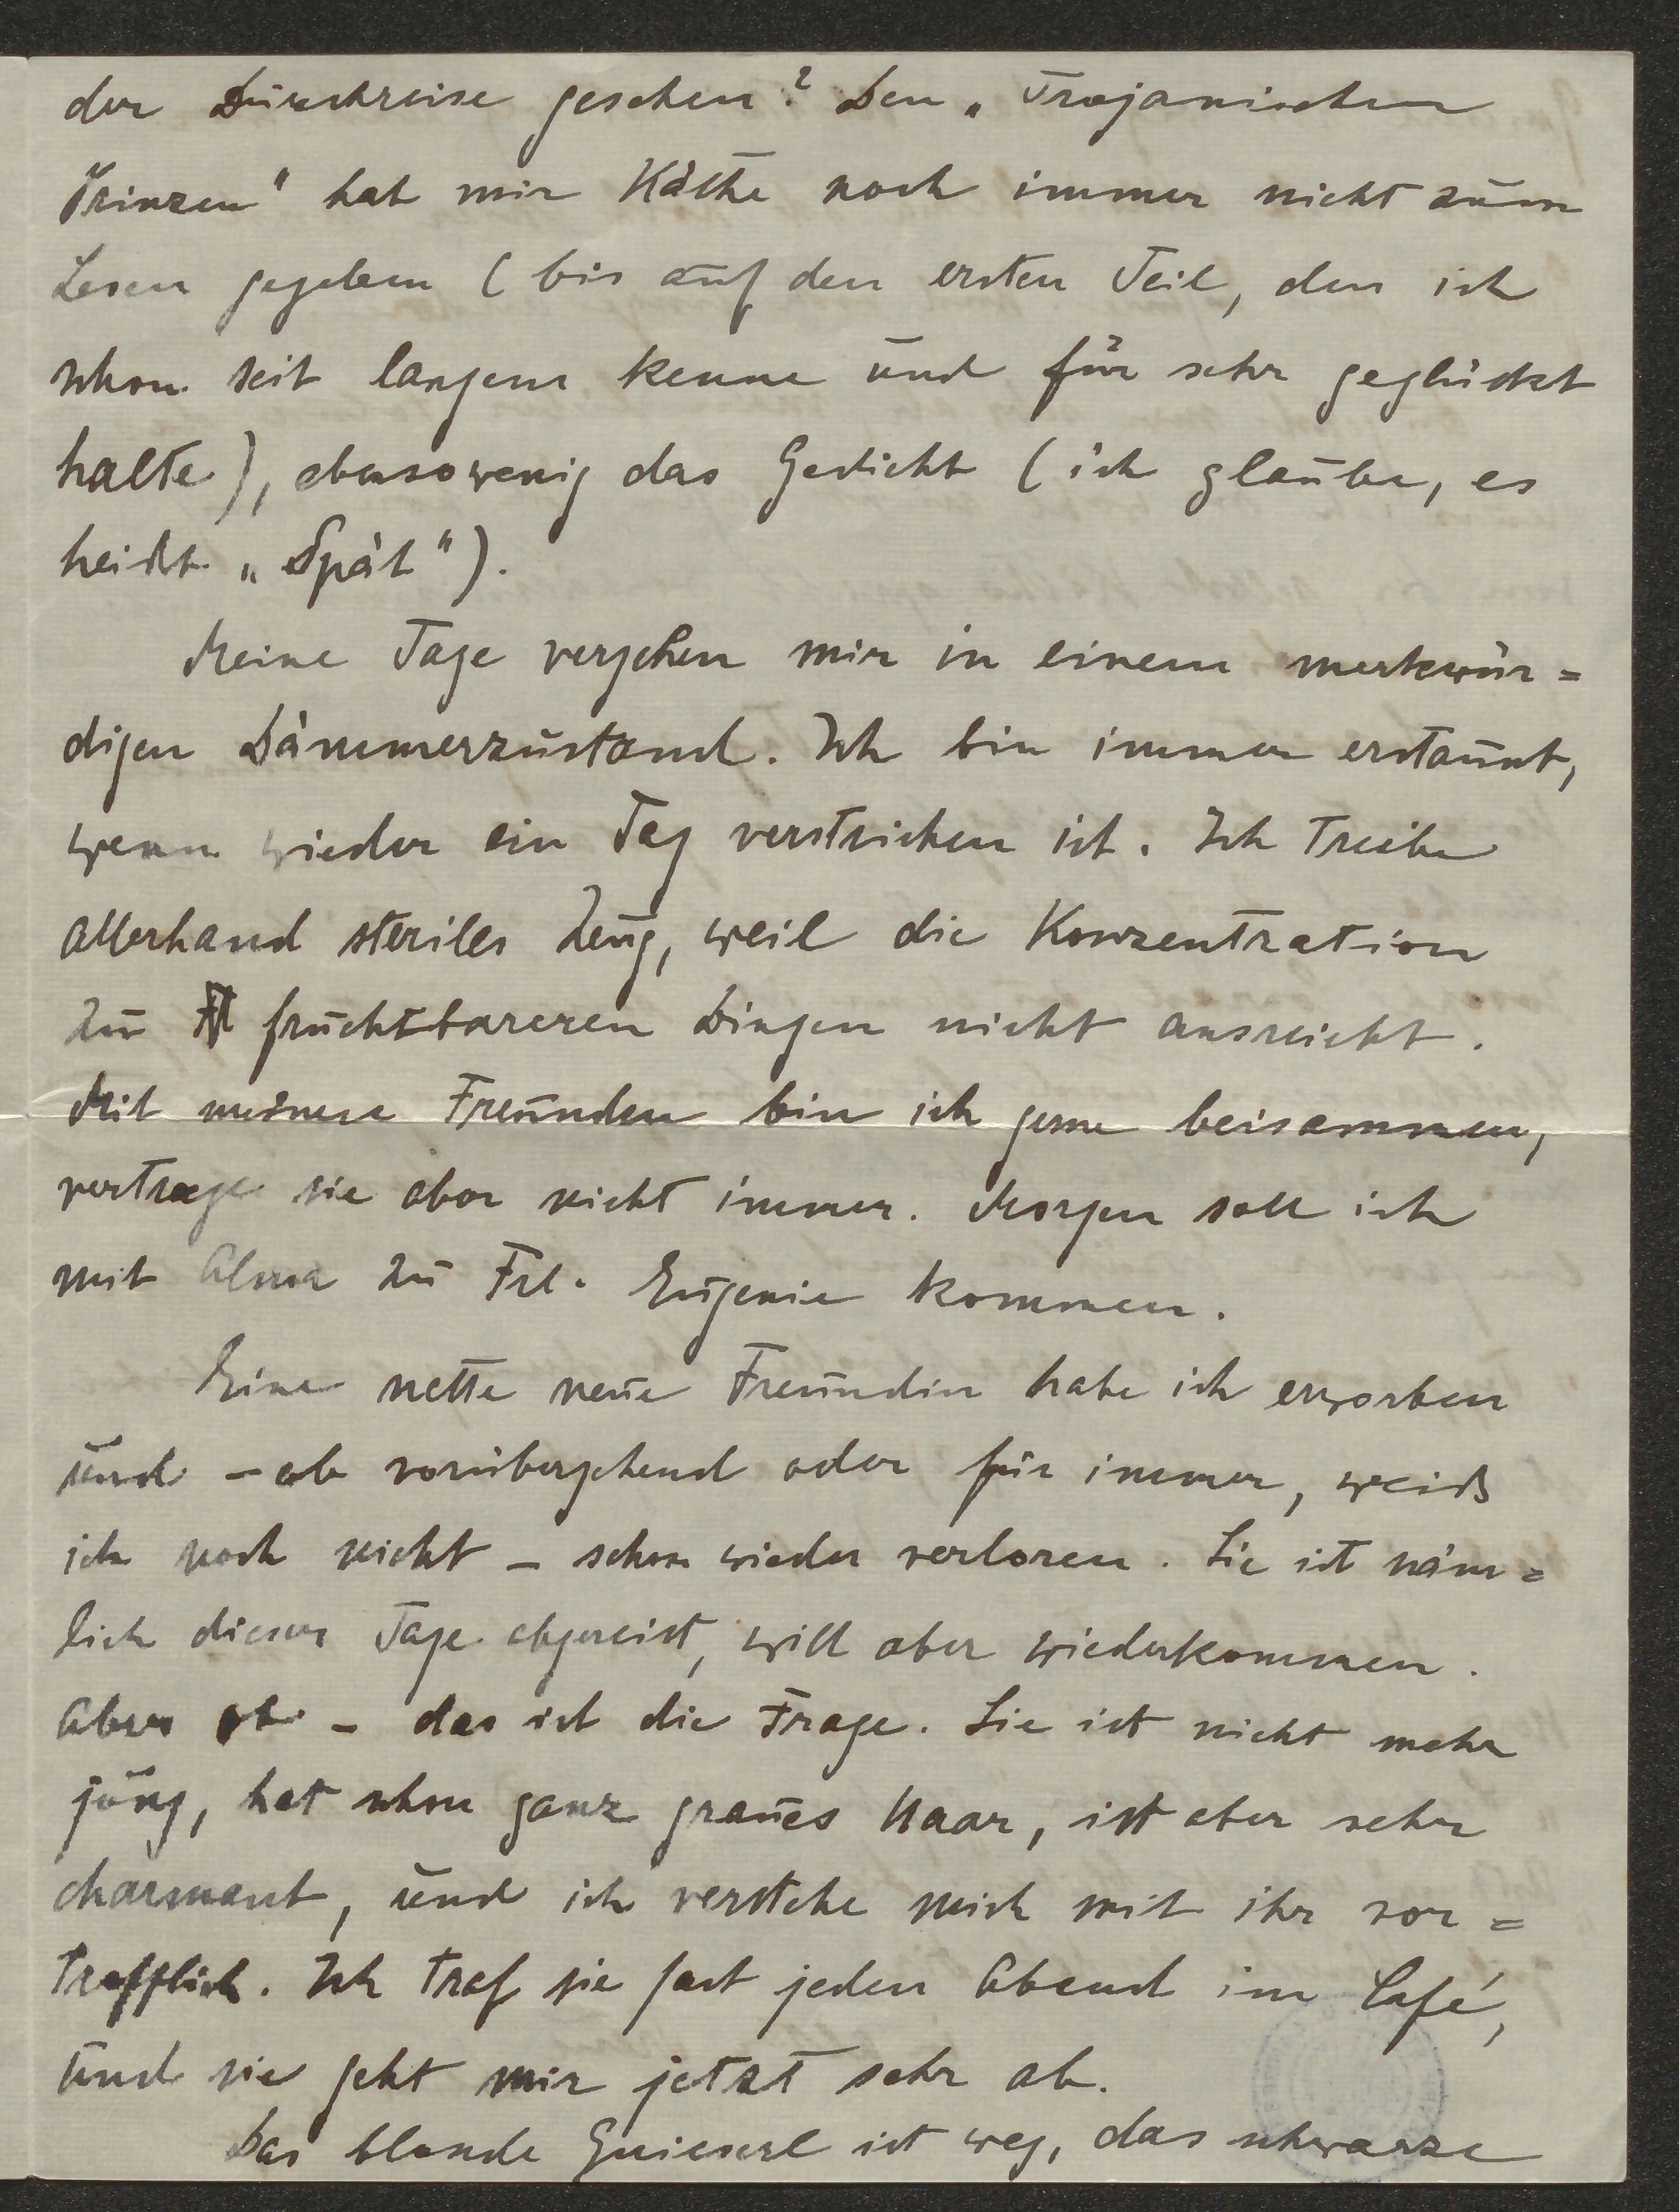 der Durchreise gesehen? Den „Trojanischen
Prinzen" hat mir Käthe noch immer nicht zum
Lesen gegeben (bis auf den ersten Teil, den ich
schon seit langem kenne und für sehr geglückt
halte), ebensowenig das Gedicht (ich glaube, es
heißt „Spät").
Meine Tage vergehen mir in einem merkwür=
digen Dämmerzustand. Ich bin immer erstaunt,
wenn wieder ein Tag verstrichen ist. Ich treibe
allerhand steriles Zeug, weil die Konzentration
zu fruchtbareren Dingen nicht ausreicht.
Mit meinen Freunden bin ich gerne beisammen,
vertrage sie aber nicht immer. Morgen soll ich
mit Alma zu Frl. Eugenie kommen.
Eine nette neue Freundin habe ich erworben
und – ob vorübergehend oder für immer, weiß
ich noch nicht – schon wieder verloren. Sie ist näm=
lich dieser Tage abgereist, will aber wiederkommen.
Aber ob – das ist die Frage. Sie ist nicht mehr
jung, hat schon ganz graues Haar, ist aber sehr
charmant, und ich verstehe mich mit ihr vor=
trefflich. Ich traf sie fast jeden Abend im Café,
und sie geht mir jetzt sehr ab.
Das blonde ist weg, das schwarze